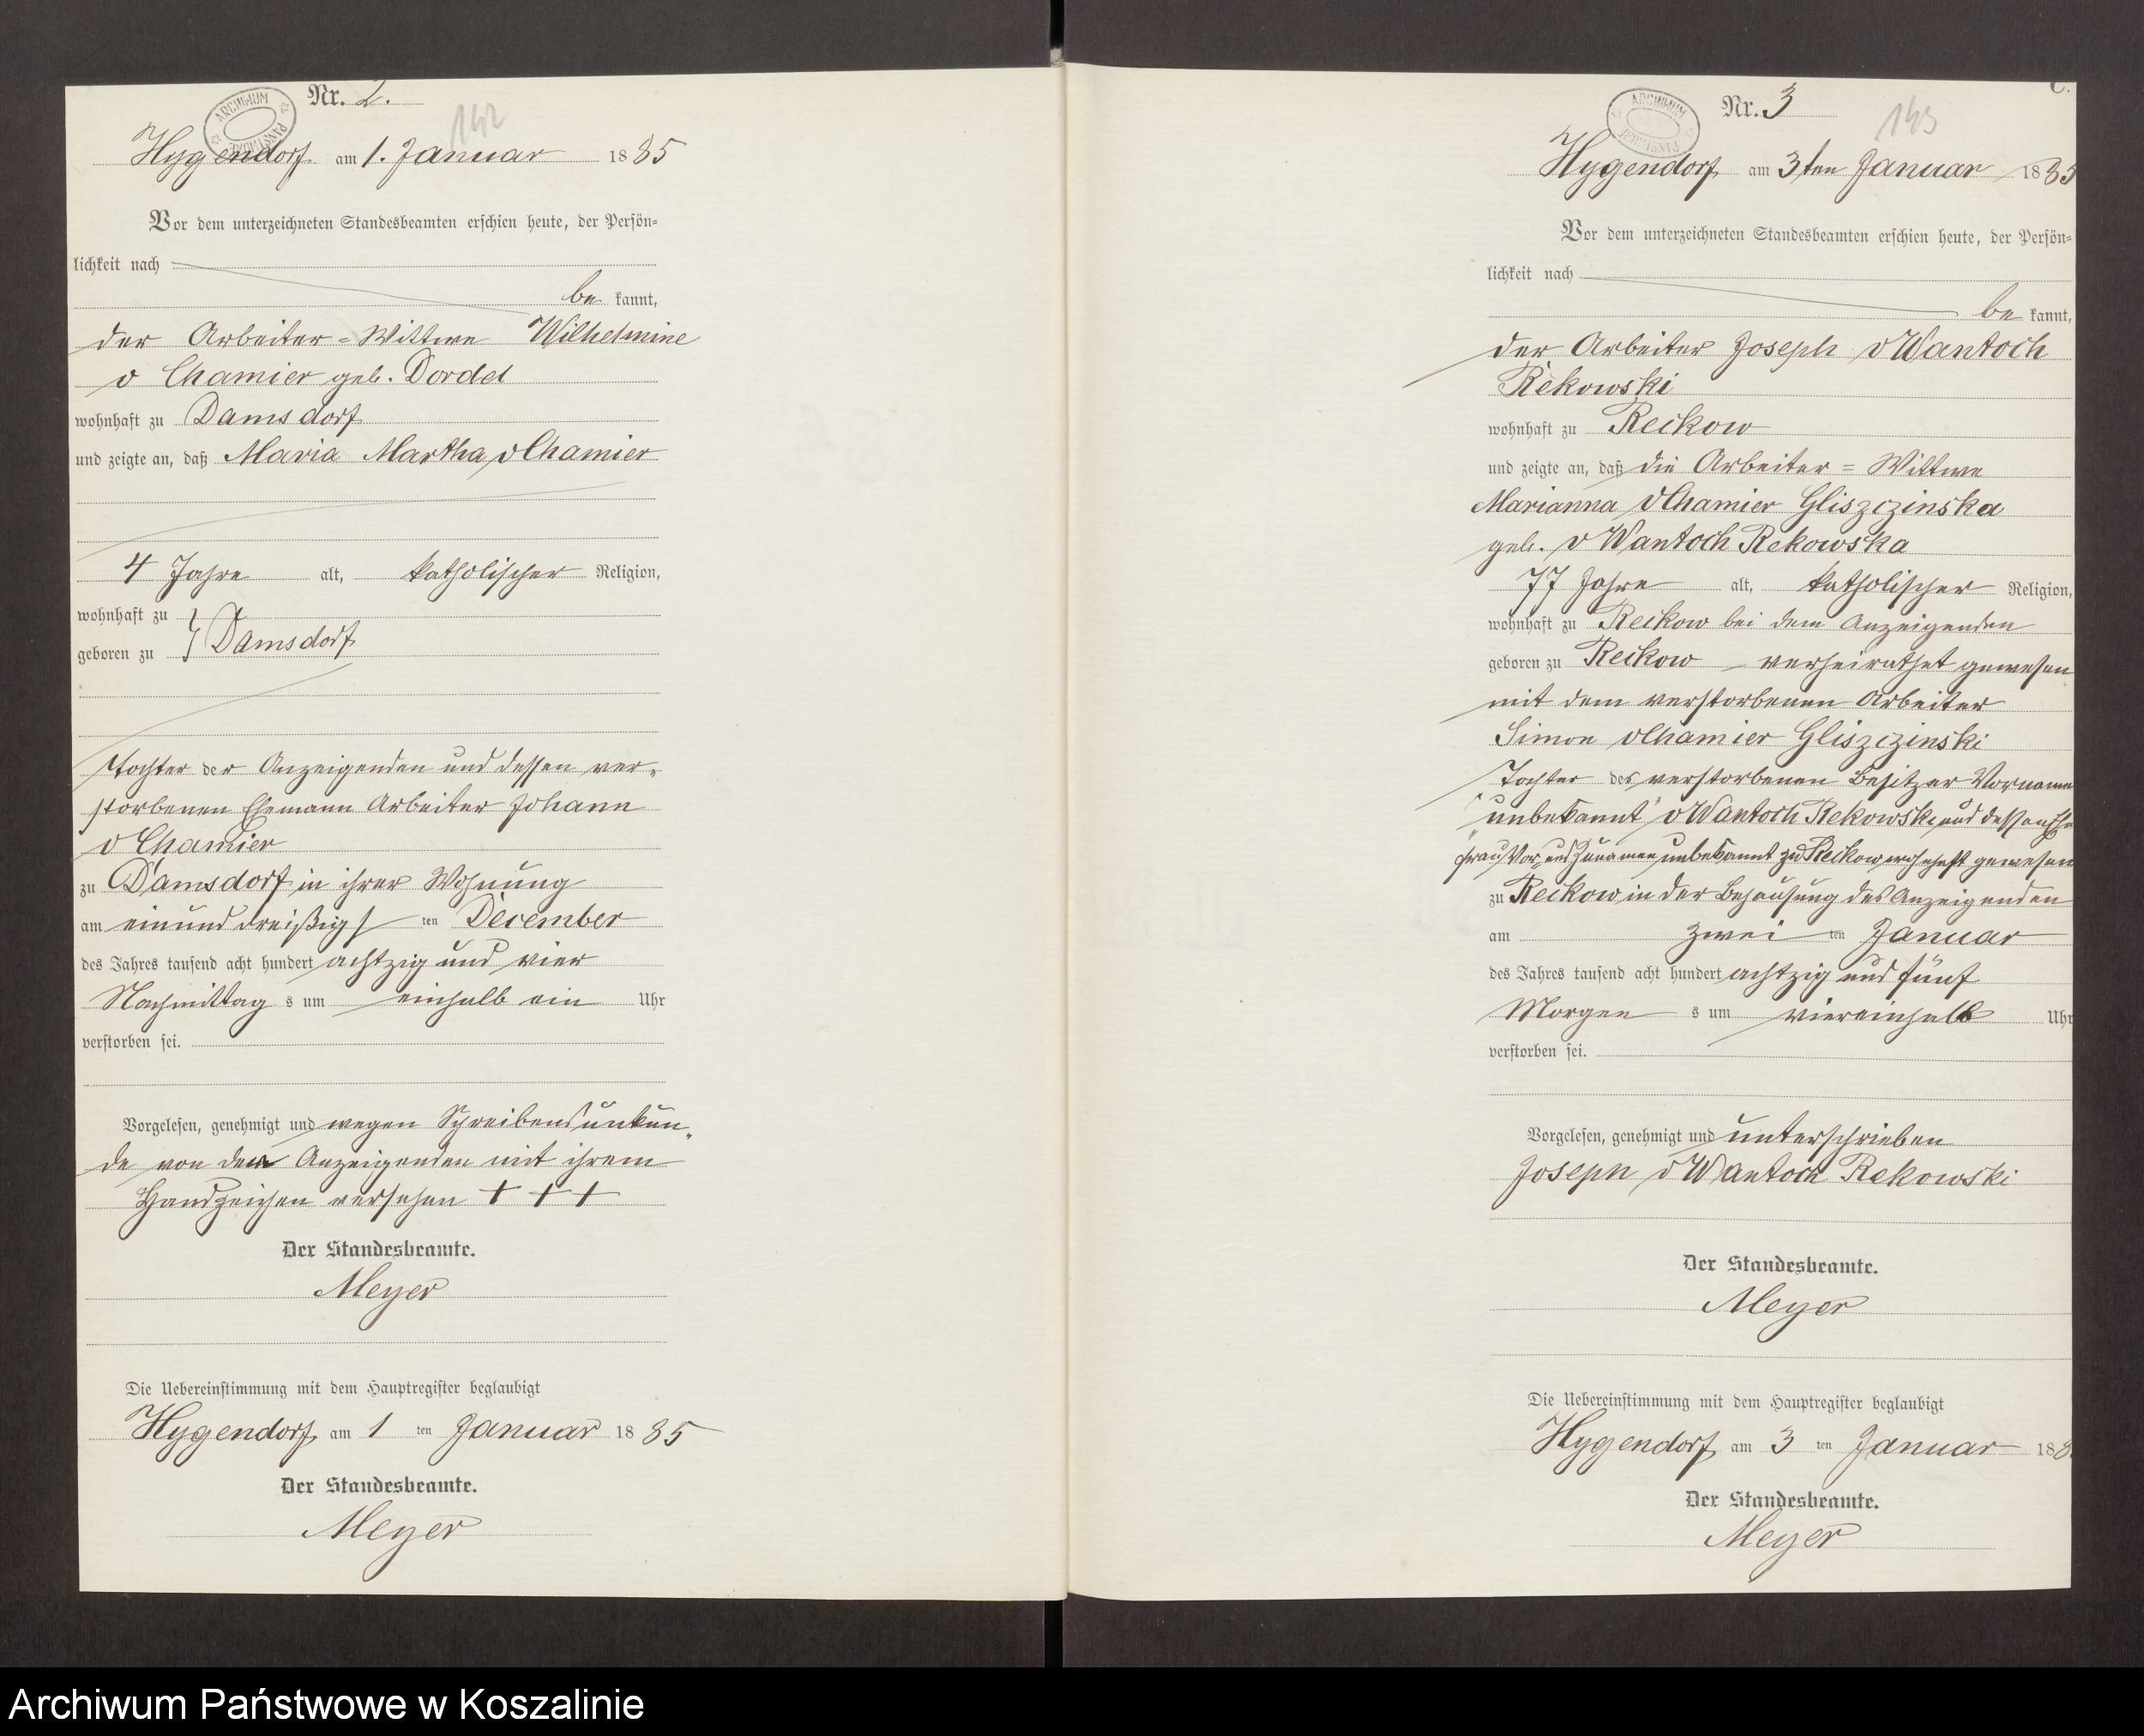 ARCHIWUM PAŃSTWOWE
Nr. 2.
142
Hygendorf am 1. Januar 1885
Vor dem unterzeichneten Standesbeamten erschien heute, der Persön-
lichkeit nach
be kannt,
der Arbeiter-Wittwe Wilhelmine
v Chamier geb. Dordel
wohnhaft zu Damsdorf
und zeigte an, daß Maria Martha v Chamier
4 Jahre alt, katholischer Religion,
wohnhaft zu
geboren zu Damsdorf
Tochter der Anzeigenden und dessen ver-
storbenen Ehemann Arbeiter Johann
v Chamier
zu Damsdorf in ihrer Wohnung
am einunddreißigs ten December
des Jahres tausend acht hundert achtzig und vier
Nachmittag s um einhalb ein Uhr
verstorben sei.
Vorgelesen, genehmigt und wegen Schreibensunkun-
de von der Anzeigenden mit ihrem
Handzeichen versehen + + +
Der Standesbeamte.
Meyer
Die Uebereinstimmung mit dem Hauptregister beglaubigt
Hygendorf am 1 ten Januar 1885
Der Standesbeamte.
Meyer
C.
ARCHIWUM PAŃSTWOWE
Nr. 3
143
Hygendorf am 3ten Januar 1885
Vor dem unterzeichneten Standesbeamten erschien heute, der Persön-
lichkeit nach
be kannt,
der Arbeiter Joseph v Wantoch
Rekowski
wohnhaft zu Reckow
und zeigte an, daß die Arbeiter=Wittwe
Marianna v Chamier Gliszczinska
geb. v Wantoch Rekowska
77 Jahre alt, katholischer Religion,
wohnhaft zu Reckow bei dem Anzeigenden
geboren zu Reckow verheirathet gewesen
mit dem verstorbenen Arbeiter
Simon v Chamier Gliszczinski
Tochter des verstorbenen Besitzer Vorname
"unbekannt" v Wantoch Rekowski und dessen Ehe
frau, Vor und Zunamen unbekannt zu Reckow wohnhaft gewesen
zu Reckow in der Behausung des Anzeigenden
am zwei ten Januar
des Jahres tausend acht hundert achtzig und fünf
Morgen s um viereinhalb Uhr
verstorben sei.
Vorgelesen, genehmigt und unterschrieben
Joseph v Wantoch Rekowski
Der Standesbeamte.
Meyer
Die Uebereinstimmung mit dem Hauptregister beglaubigt
Hygendorf am 3 ten Januar 188
Der Standesbeamte.
Meyer
Archiwum Państwowe w Koszalinie